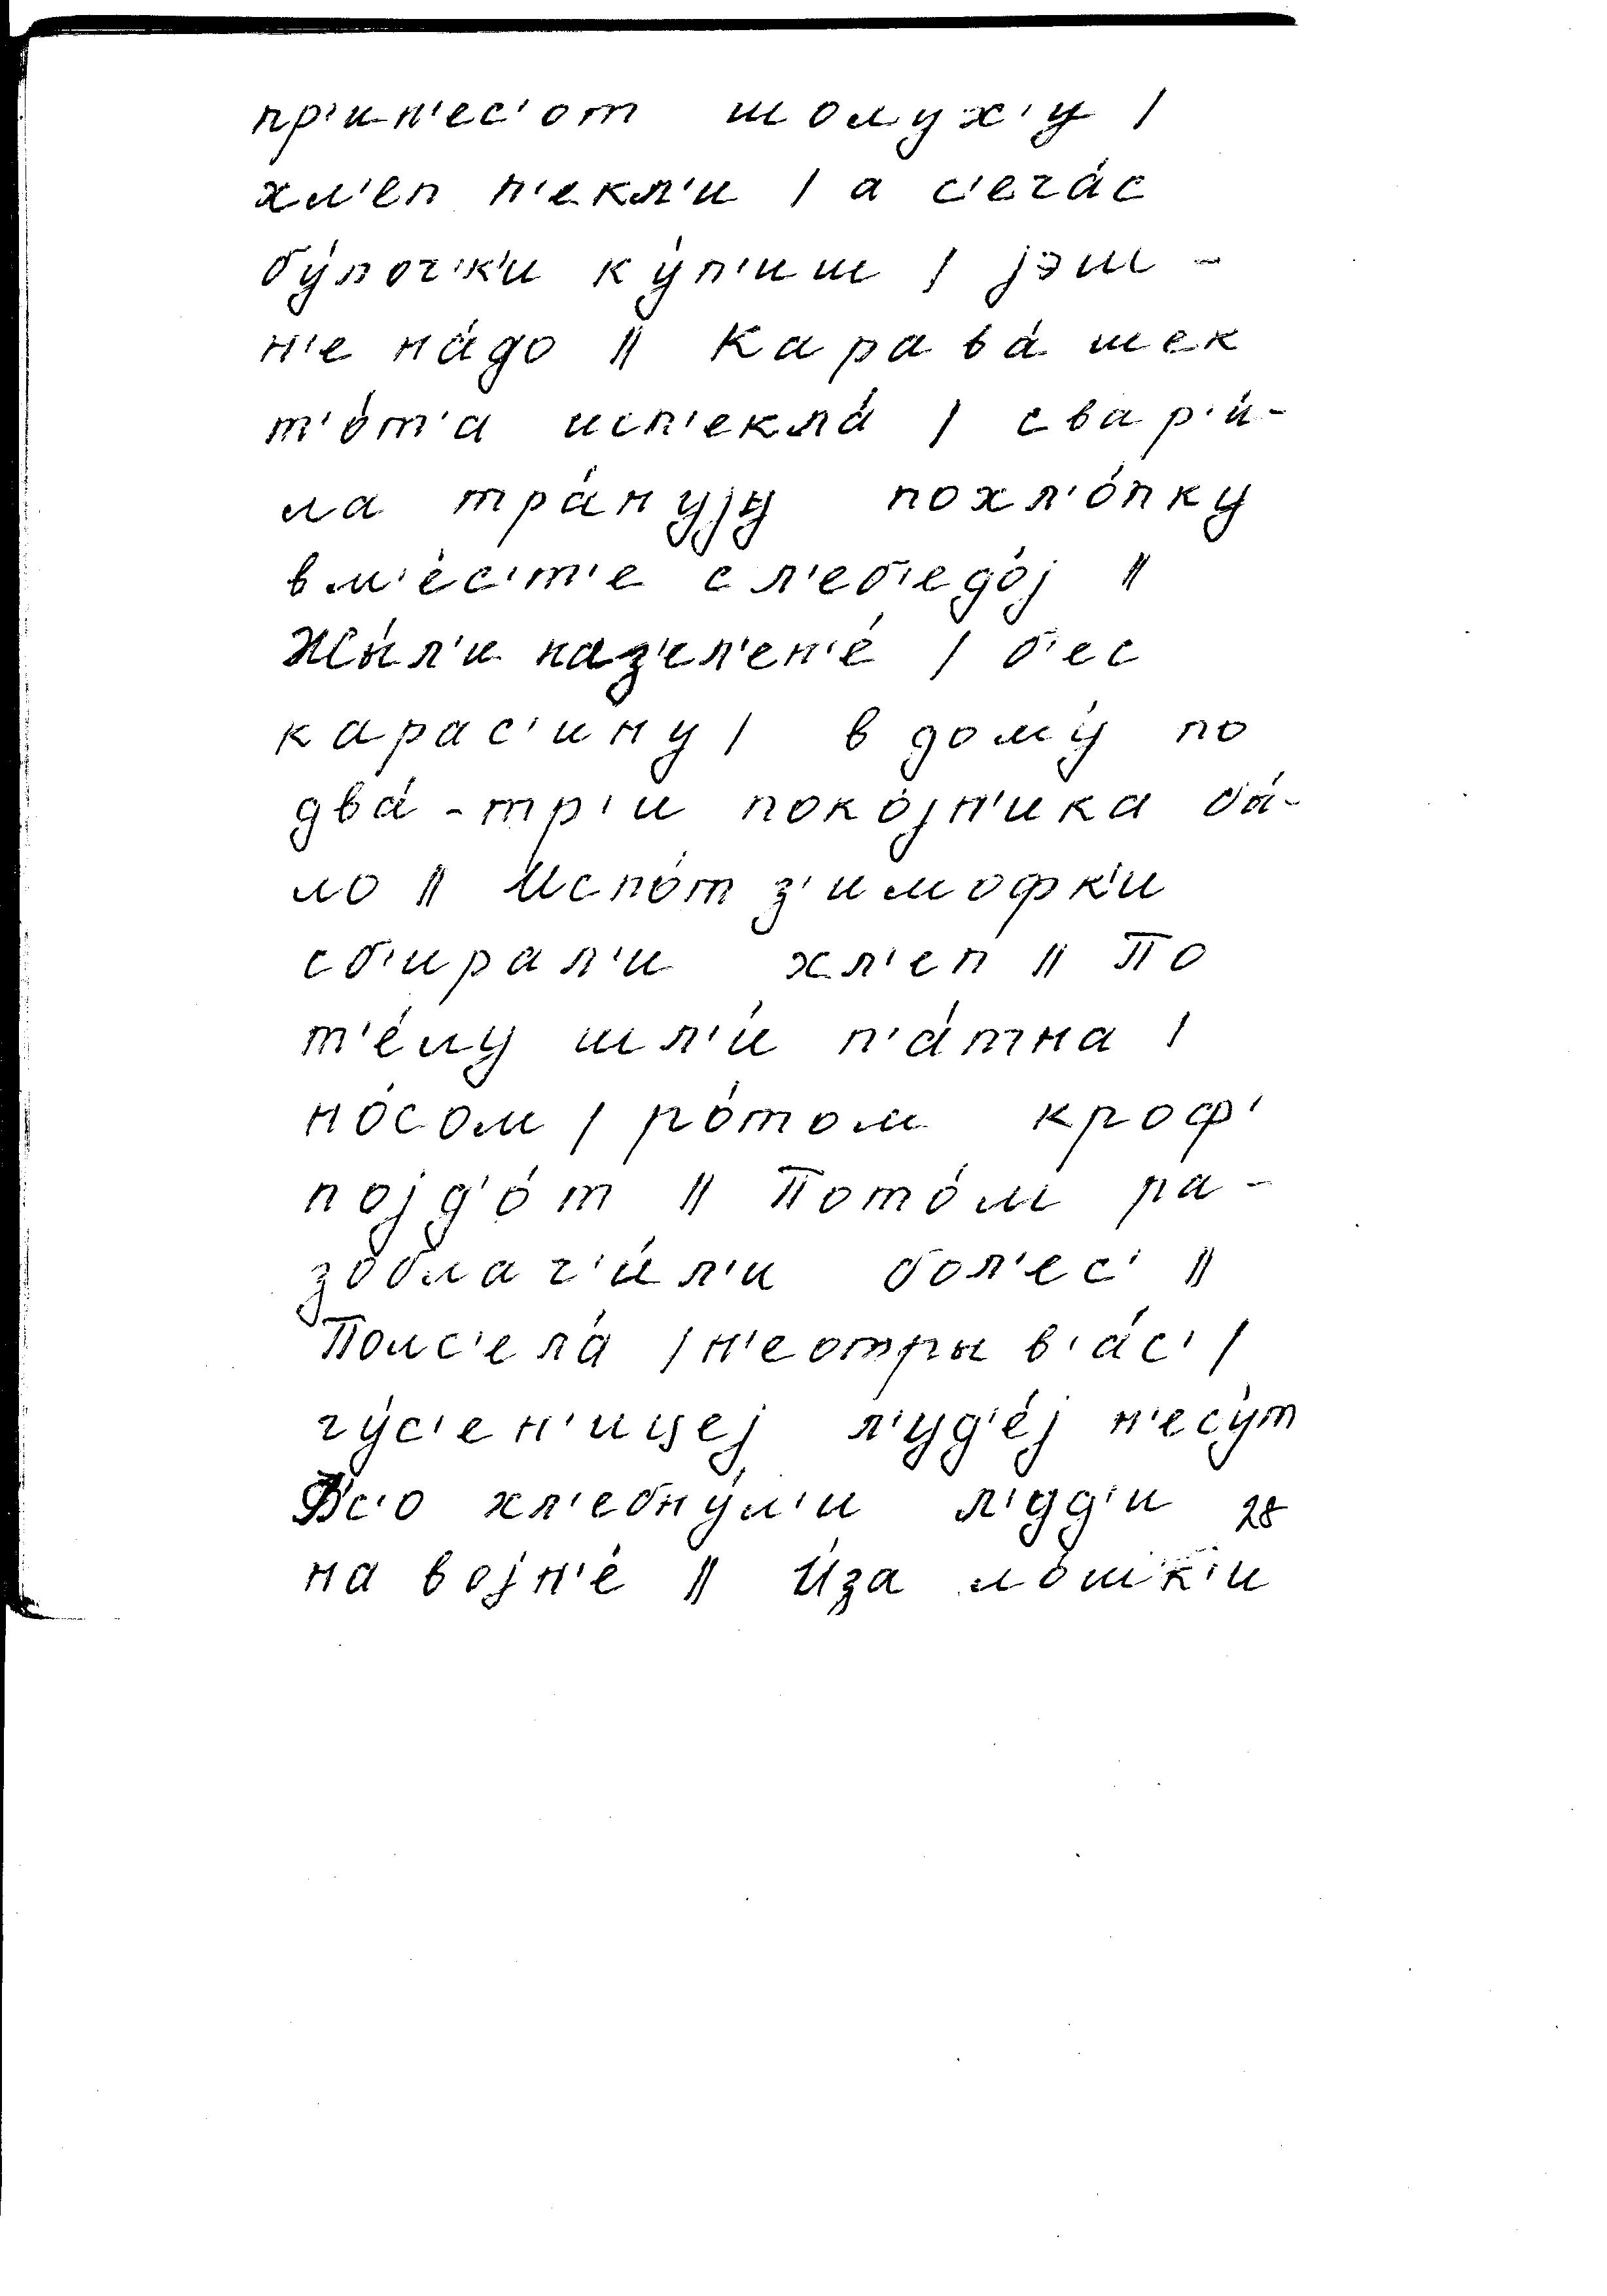 пр'ин'ес'от шолух'у /
хл'еп п'екл'и / а с'еча́с
бу́лоч'к'и ку́п'иш / jэш -
н'е на́до // Карава́шек
т'о́т'а исп'екла́ / свар'и́-
ла тра́нуjу похл'о́пку
вм'е́с'т'е с л'еб'едо́j //
Жы́л'и наз'ел'ен'е́ / б'ес
карас'ину / в дому́ по
два́ - тр'и поко́jн'ика бы́-
ло // Испо́т з'имофк'и
сб'ирал'и хл'еп // По
т'е́лу шл'и́ п'а́тна /
но́сом / ро́том кроф'
поjд'о́т // Пото́м ра -
зоблач'и́л'и бол'ес' //
Полс'ела́ / н'еотрыв'а́с' /
гу́с'ен'ицеj л'уд'е́j н'есу́т
Вс'о хл'ебну́л'и л'уд'и 28
на воjн'е́ // И́за ло́шк'и